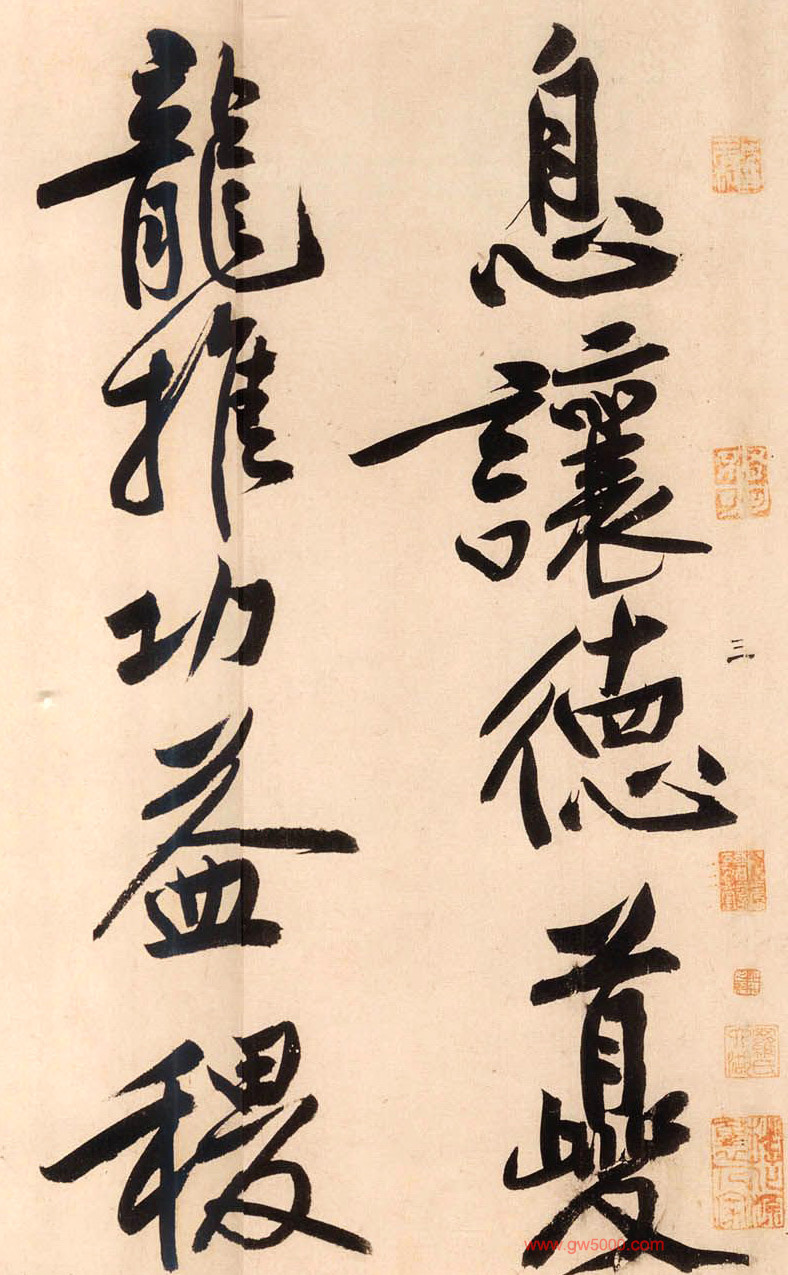 息讓德夔
龍推功益稷
三
www.gw5000.com